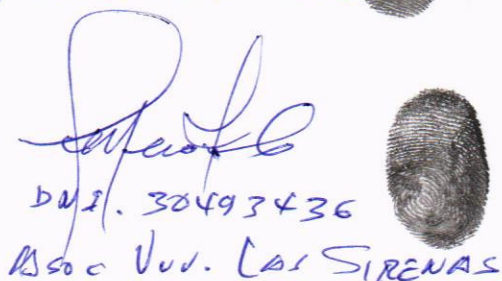 DNI. 30493436
Asoc Viv. Las SIRENAS